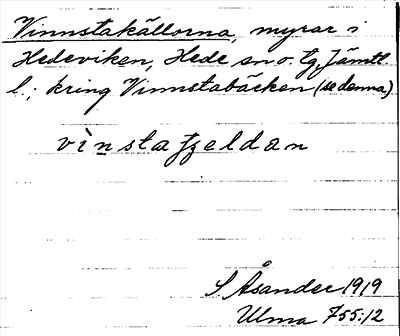 Vinnstakällorna, myrar i
Hedeviken, Hede sn o. tg, Jämtl
l.; kring Vinnstabäcken (se denna)
vìnsta
S Åsander 1919
Ulma 755:12